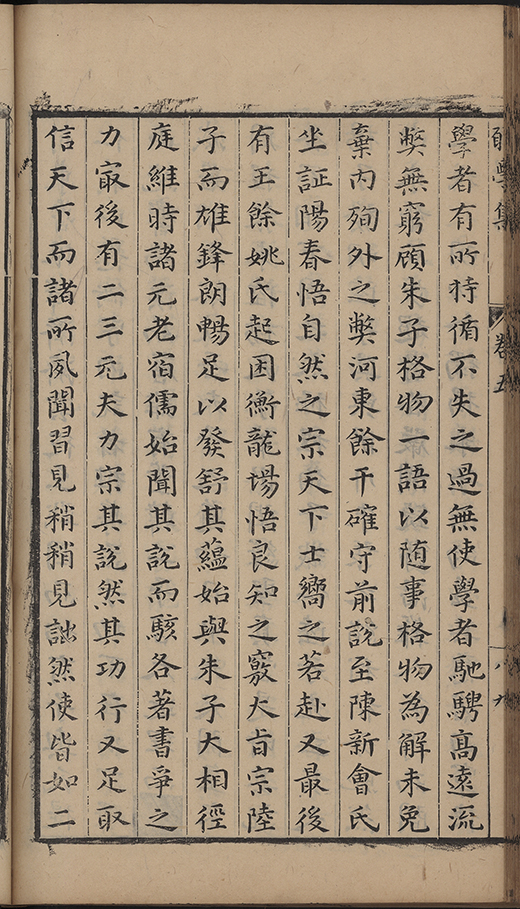 學者有所持循不失之過無使學者馳騁高遠流
弊無窮顧朱子格物一語以随事格物為解未免
棄内殉外之弊河東餘干確守前說至陳新會氏
坐証陽春悟自然之宗天下士嚮之若赴又最後
有王餘姚氏起困衡龍場悟良知之竅大㫖宗陸
子而雄鋒朗暢足以發舒其蘊始與朱子大相徑
庭維時諸元老宿儒始聞其說而駭各著書爭之
力㝡後有二三元夫力宗其說然其功行又足取
信天下而諸所夙聞習見稍稍見詘然使皆如二